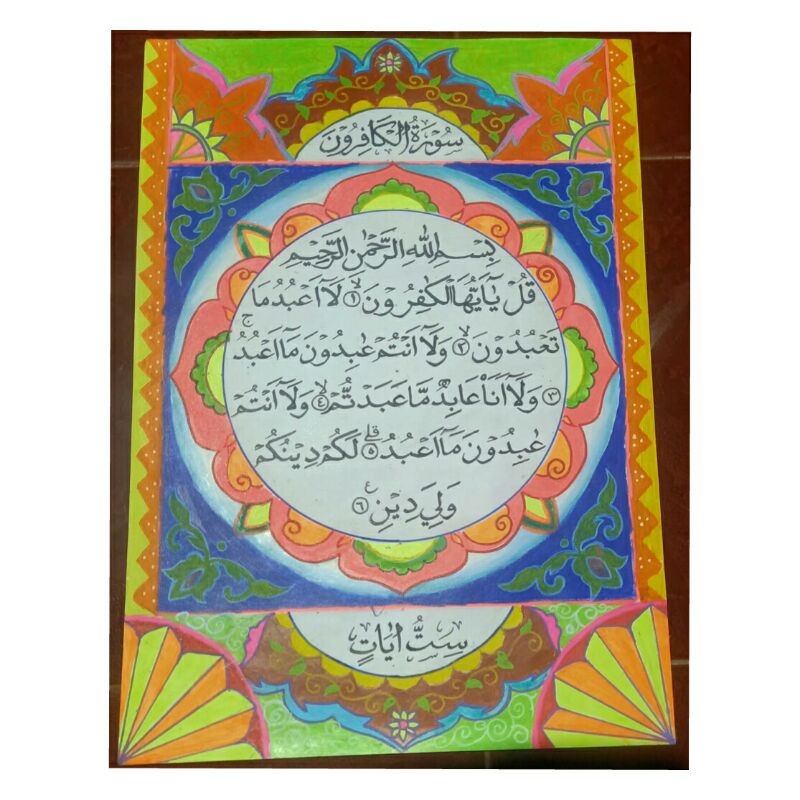 سُوْرَةُ الْكَافِرُوْنَ
بِسْمِ اللّٰهِ الرَّحْمٰنِ الرَّحِيْمِ
قُلْ يٰٓاَيُّهَا الْكٰفِرُوْنَۙ ١ لَآ اَعْبُدُ مَا
تَعْبُدُوْنَۙ ٢ وَلَآ اَنْتُمْ عٰبِدُوْنَ مَآ اَعْبُدُۚ
٣ وَلَآ اَنَا۠ عَابِدٌ مَّا عَبَدْتُّمْۙ ٤ وَلَآ اَنْتُمْ
عٰبِدُوْنَ مَآ اَعْبُدُۗ ٥ لَكُمْ دِيْنُكُمْ
وَلِيَ دِيْنِ ࣖ ٦
سِتُّ اٰيَاتٍ